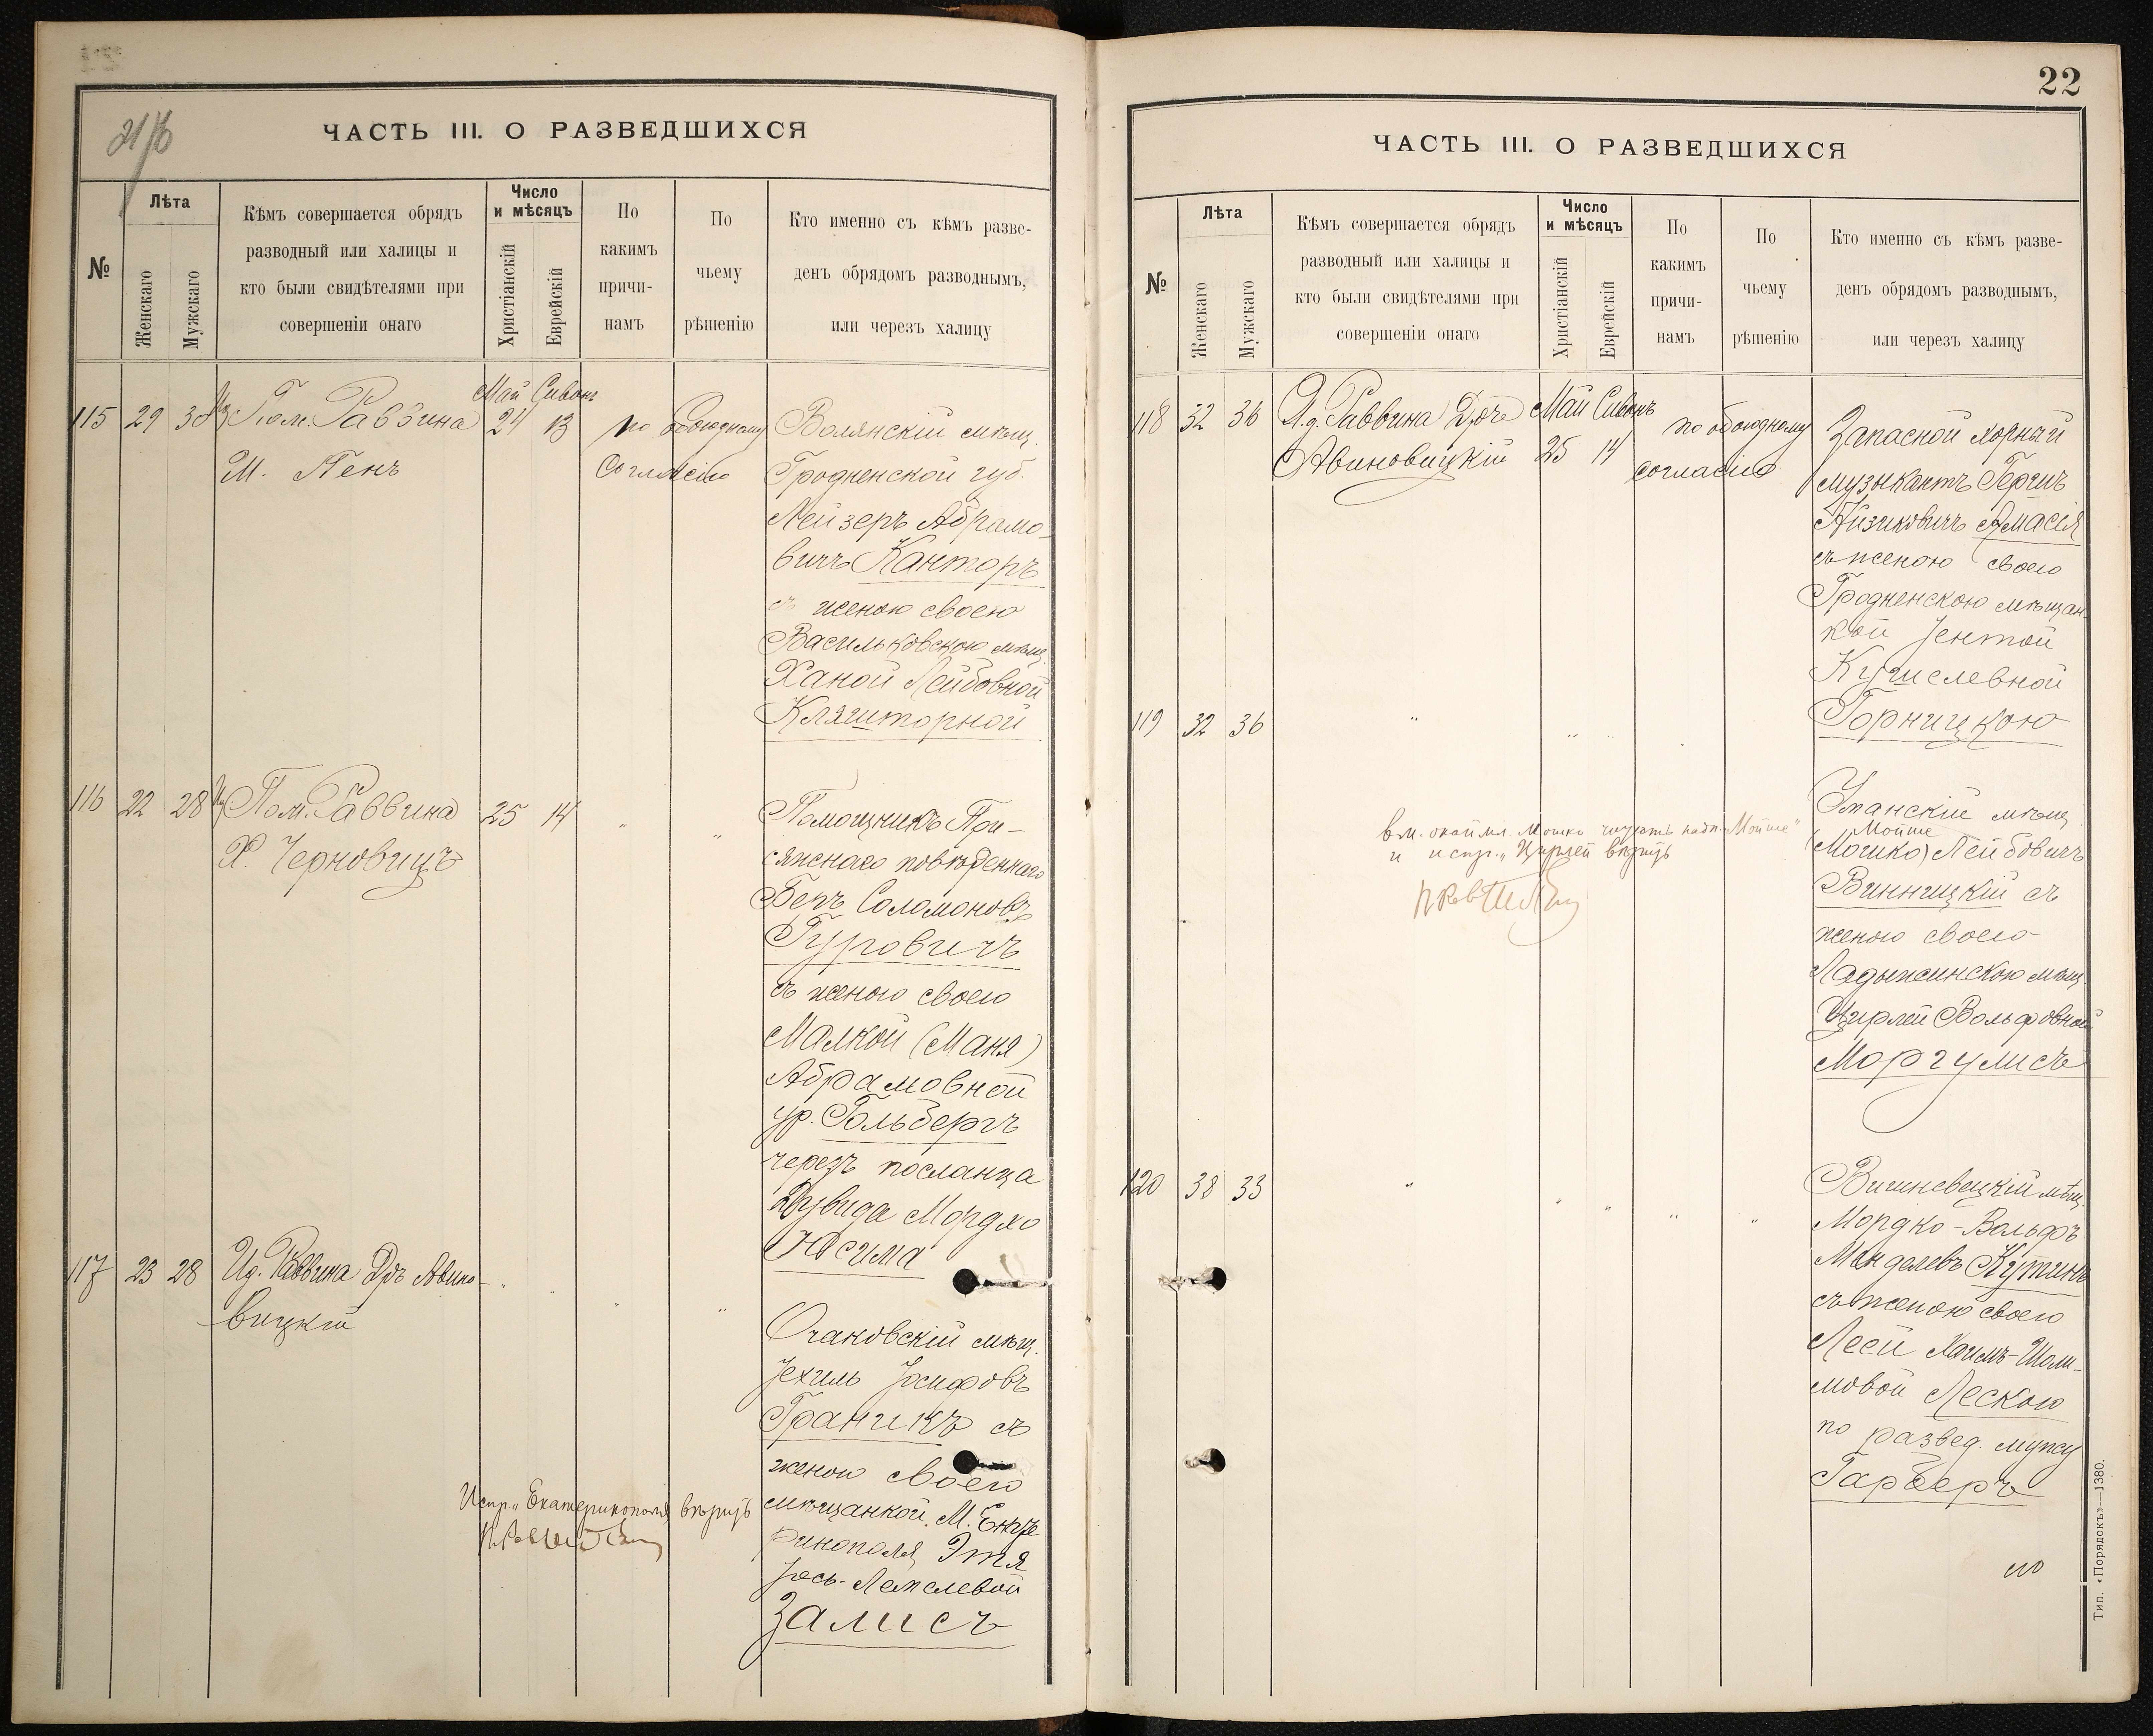 ЧАСТЬ III. О РАЗВЕДШИХСЯ
№
Лѣта
Женскаго
Мужскаго
Кѣмъ совершается обрядъ
разводный или халицы и
кто были свидѣтелями при
совершеніи онаго
Число
и мѣсяцъ
Христіанскій
Еврейскій
По
какимъ
причи-
намъ
По
чьему
рѣшенію
Кто именно съ кѣмъ разве-
денъ обрядомъ разводнымъ,
или черезъ халицу
115 29 30 Пом. Раввина
М. Пенъ
Май Сивонъ
24 13
по обоюдному
согласію
Волянскій мѣщ.
Гродненской губ.
Лейзеръ Абрамо-
вичъ Канторъ
съ женою своею
Васильковскою мѣщ.
Ханой Лейбовной
Кляшторной
116 22 28 Пом. Раввина
Х. Черновицъ
25 14 " "
Помощникъ При-
сяжнаго повѣреннаго
Беръ Соломоновъ
Гуровичъ
съ женою своею
Малкой (Маня)
Абрамовной
ур. Гольбергъ
черезъ посланца
Дувида Мордхо
Юсима
117 23 28 И.д. Раввина Д-ръ Авино-
вицкій
" " " "
Очаковскій мѣщ.
Іехиль Іосифовъ
Граникъ съ
женою своею
мѣщанкой М. Екате
ринополя Этя
Іось-Лемелевой
Залисъ
Испр. "Екатеринополя" вѣрить
22
ЧАСТЬ III. О РАЗВЕДШИХСЯ
№
Лѣта
Женскаго
Мужскаго
Кѣмъ совершается обрядъ
разводный или халицы и
кто были свидѣтелями при
совершеніи онаго
Число
и мѣсяцъ
Христіанскій
Еврейскій
По
какимъ
причи-
намъ
По
чьему
рѣшенію
Кто именно съ кѣмъ разве-
денъ обрядомъ разводнымъ,
или черезъ халицу
118 32 36 И.д. Раввина Д-ръ
Авиновицкій
Май Сивонъ
25 14
по обоюдному
согласію
Запасной хорный
музыкантъ Гершъ
Айзиковичъ Амасія
съ женою своею
Гродненскою мѣщан-
кой Іентой
Кушелевной
Горницкою
119 32 36 " " " "
Уманскій мѣщ.
Мойше
(Мошко) Лейбовичъ
Винницкій съ
женою своею
Ладыжинскою мѣщ.
Цирлей Вольфовной
Моргулисъ
вм. окайм. Мошко читать надп. "Мойше"
и испр. "Цирлей" вѣрить
120 38 33 " " " " "
Вишневецкій мѣщ.
Мордко-Вольфъ
Менделевъ Кутинъ
съ женою своею
Леей Хаимъ-Шоли-
мовой Лескою
по развед. мужу
Гарберъ
Тип. «Порядокъ»—1380.